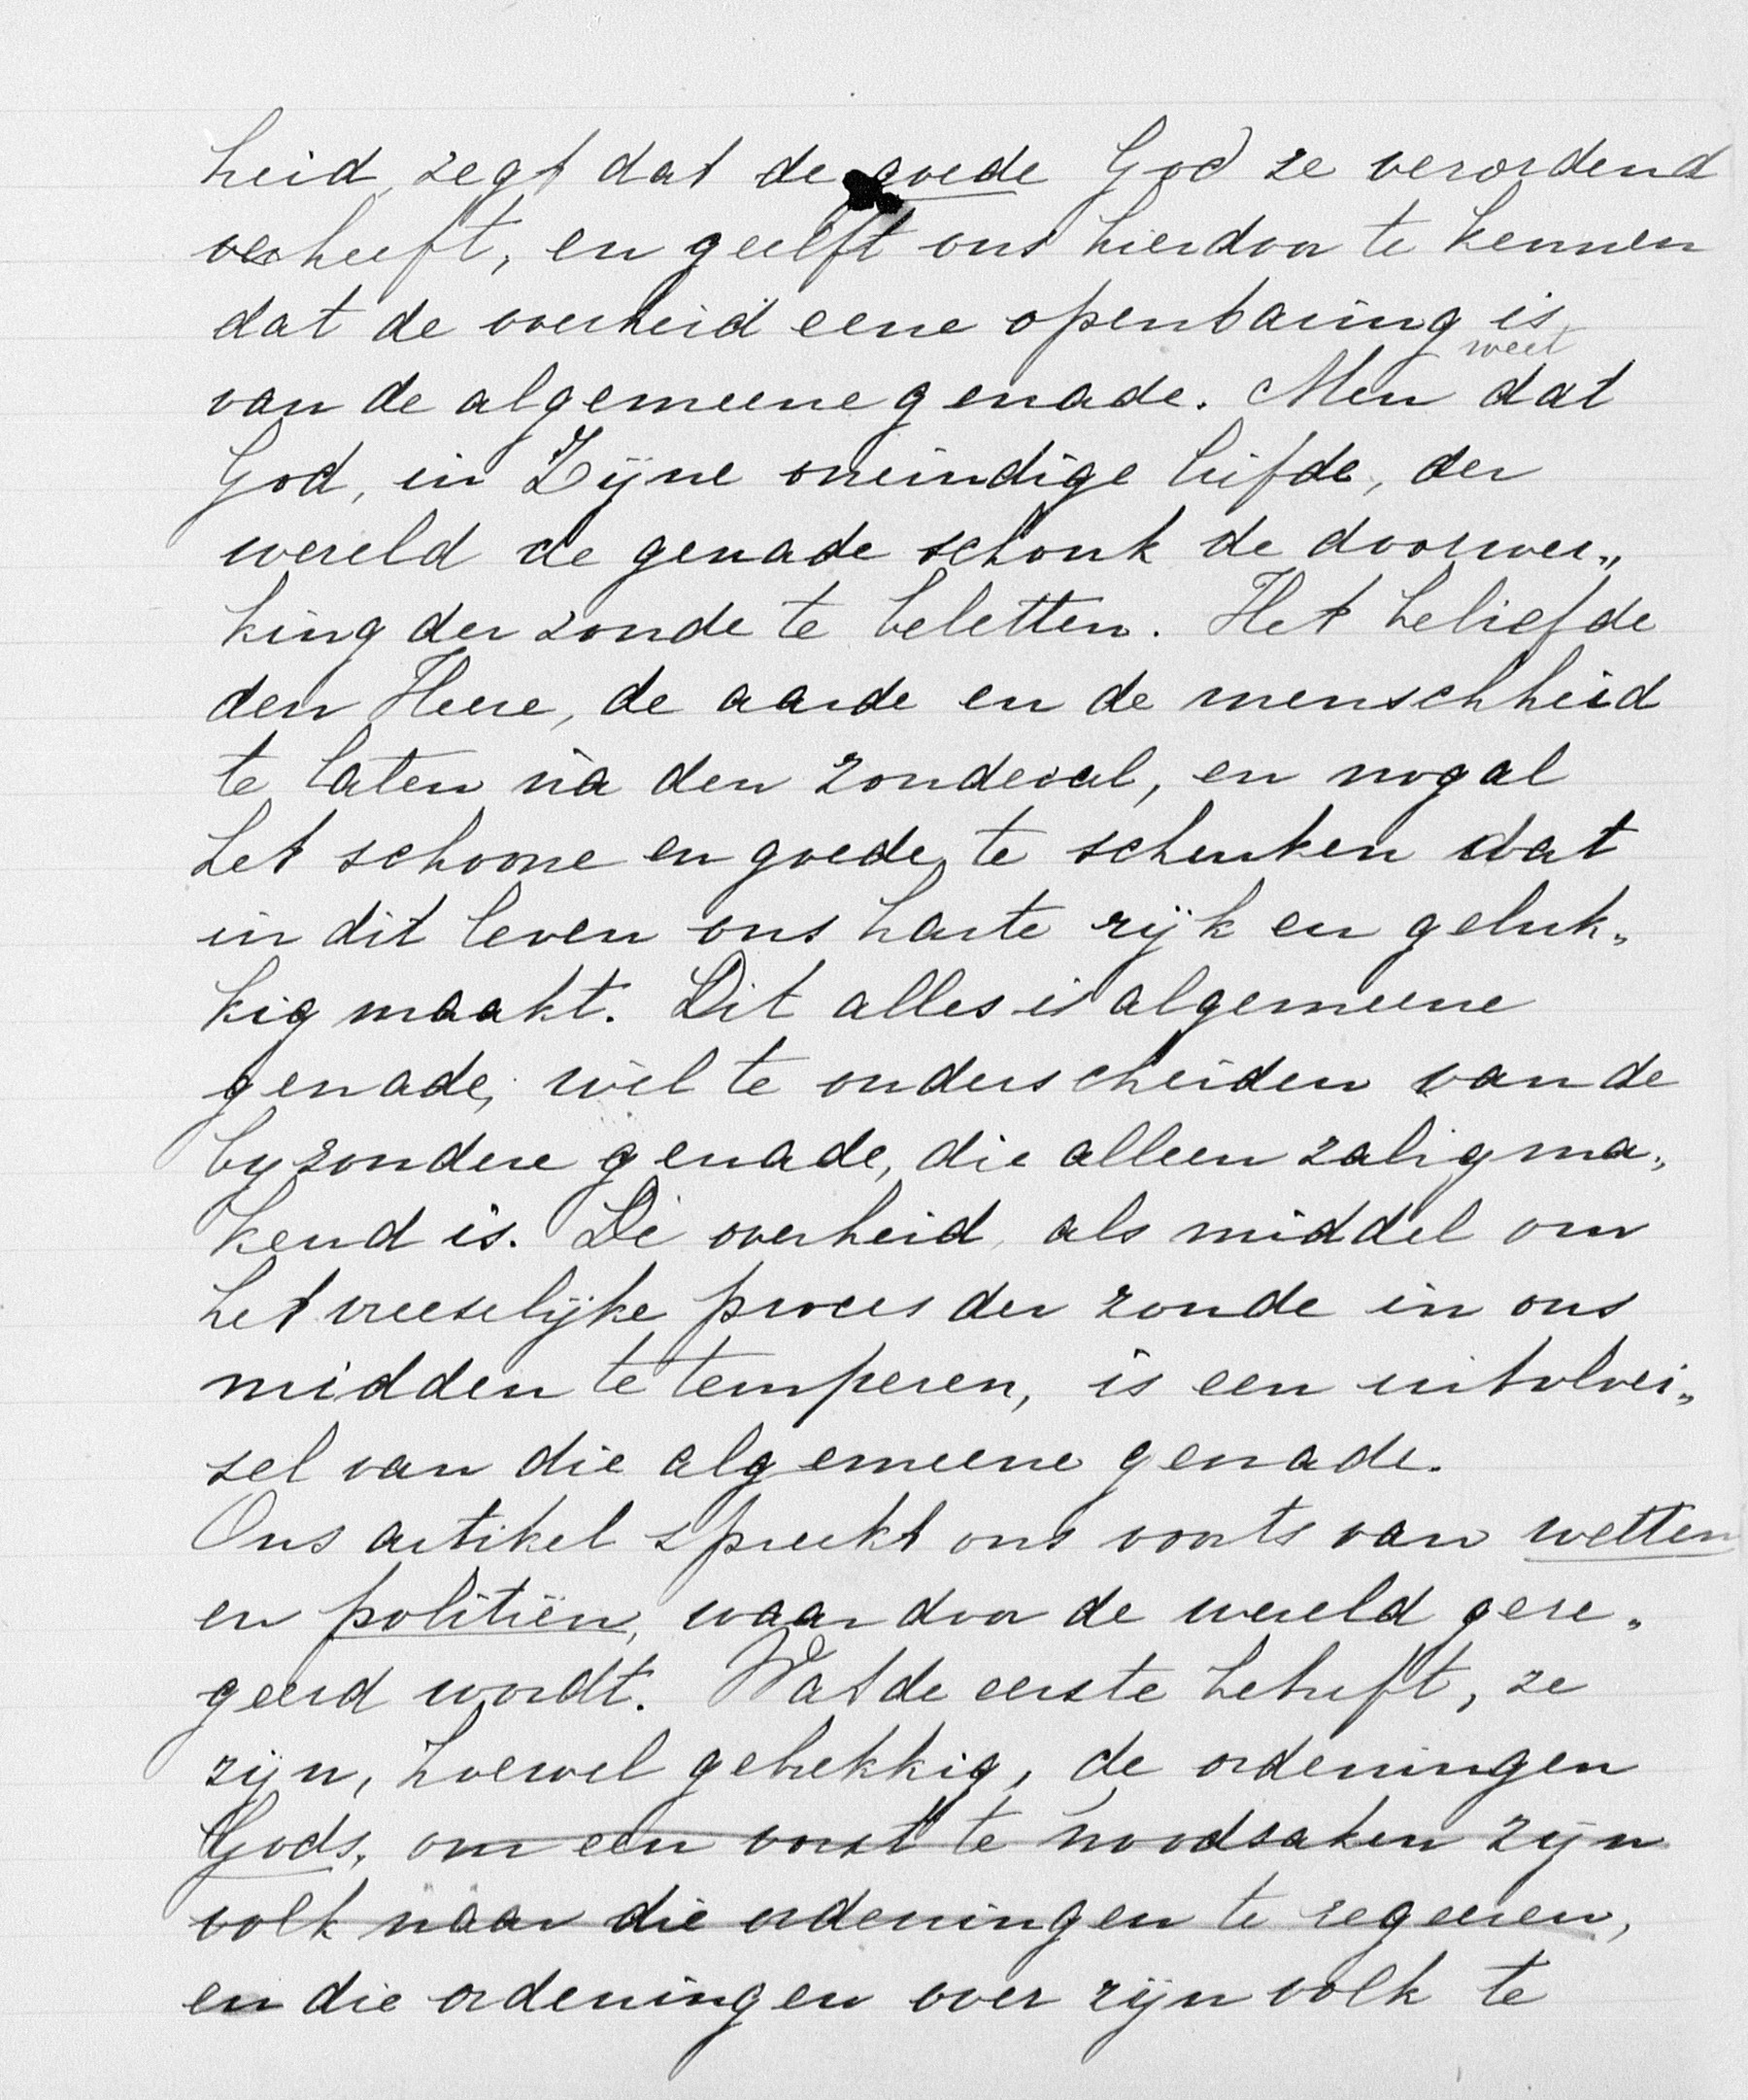 heid, zegt dat de goede God ze verordend
verheeft, en geelft ons hierdoor te kennen
dat de overheid eene openbaring is
weet
van de algemeene genade. Men dat
God, in Zijne oneindige liefde, der
wereld de genade schonk de doorwer„
king der zonde te beletten. Het beliefde
den Heere, de aarde en de menschheid
te laten nà den zondeval, en nog al
het schoone en goede te schenken dat
in dit leven ons harte rijk en geluk„
kig maakt. Dit alles is algemeene
genade, wèl te onderscheiden van de
byzondere genade, die alleen zaligma„
kend is. De overheid, als middel om
het vreeselijke proces der zonde in ons
midden te temperen, is een uitvloei„
sel van die algemeene genade.
Ons artikel spreekt ons voorts van wetten
en politiën, waardoor de wereld gere„
geerd wordt. Wat de eerste betreft, ze
zijn, hoewel gebrekkig, de ordeningen
Gods, om een vorst te noodsaken zijn
volk naar die ordeningen te regeeren,
en die ordeningen over zijn volk te